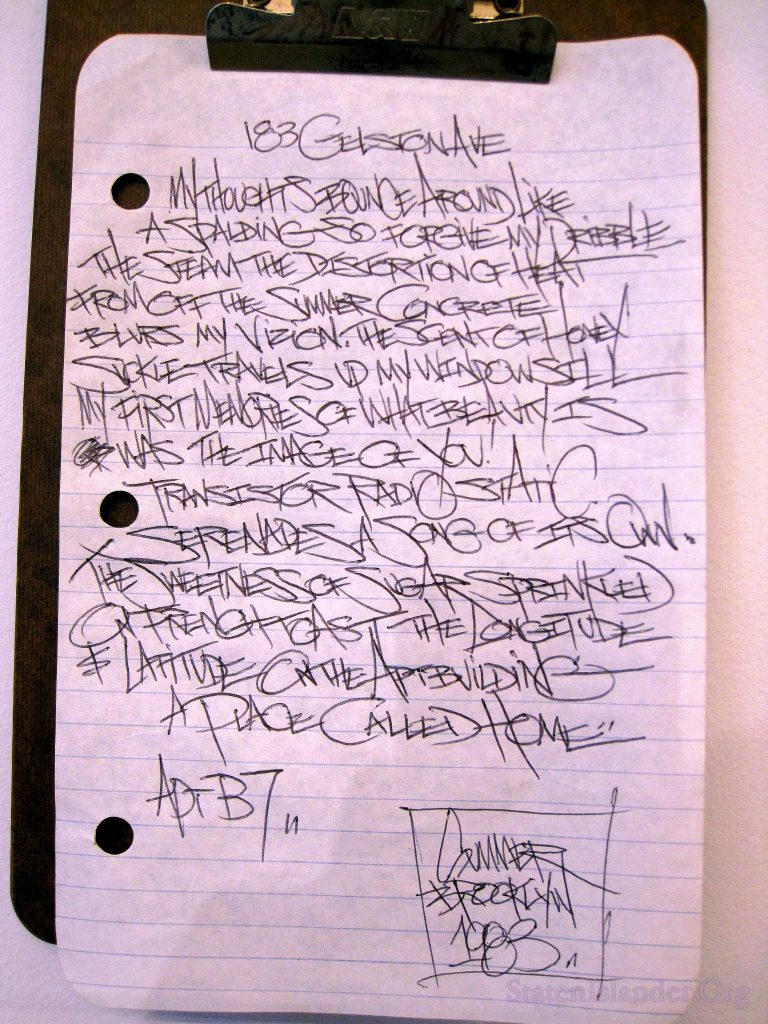 183 GELSTON AVE
MY THOUGHTS BOUNCE AROUND LIKE
A SPALDING SO FORGIVE MY DRIBBLE
THE STEAM THE DISTORTION OF HEAT
FROM OFF THE SUMMER CONCRETE
BLURS MY VIZION. THE SCENT OF HONEY
SUCKLE TRAVELS UP MY WINDOW SILL
MY FIRST MEMORIES OF WHAT BEAUTY IS
WAS THE IMAGE OF YOU!
TRANSISTOR RADIO STATIC
SERENADES A SONG OF ITS OWN.
THE SWEETNESS OF SUGAR SPRINKLED
ON FRENCH TOAST THE LONGITUDE
& LATITUDE ON THE APT BUILDING
A PLACE CALLED HOME"
APT B7 "
SUMMER
BROOKLYN
1983 "
StatenIslander.Org